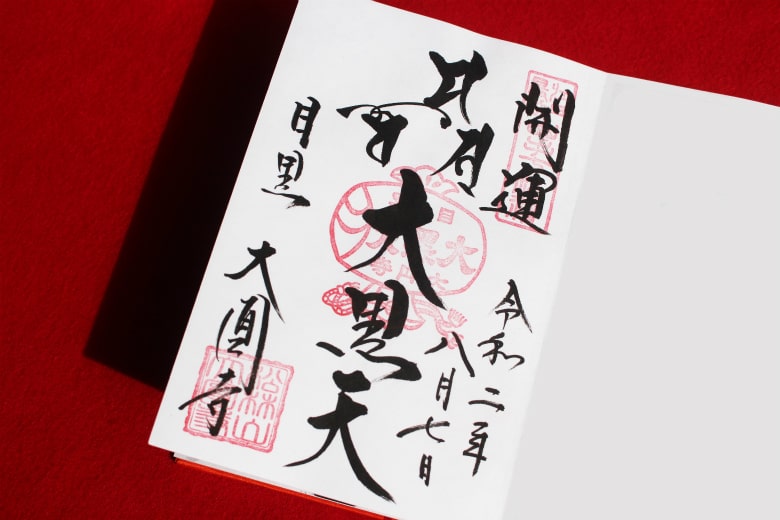 開運
令和二年
八月七日
大黒天
目黒
大圓寺